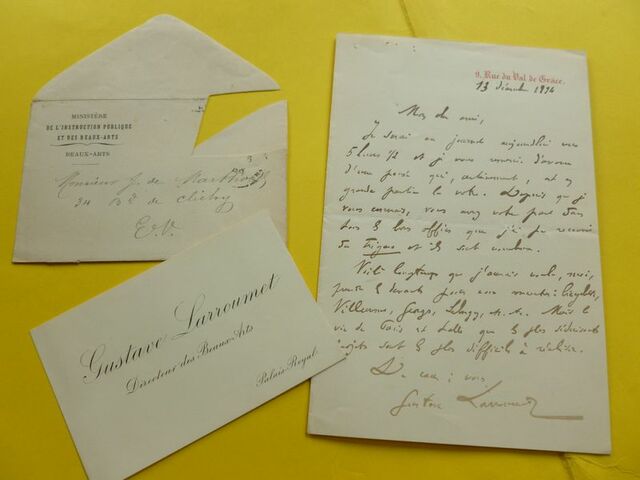 MINISTÈRE
DE L'INSTRUCTION PUBLIQUE
ET DES BEAUX-ARTS
BEAUX-ARTS
Monsieur J. de
24 Bd de Clichy
E.V.
Gustave Larroumet
Directeur des Beaux-Arts
Palais-Royal.
9, Rue du Val de Grâce.
13 décembre
Mon cher ami,
Je serai au journal aujourd'hui vers
5 heures 1/2 et je vous
d'une qui, certainement, est
grande partie la vôtre. Depuis que je
vous connais, vous avez votre part dans
tous les bons offices que j'ai reçus
du Figaro et ils sont nombreux.
Voilà longtemps que j'aurais voulu,
Mais la
vie de Paris est telle que les plus séduisants
projets sont les plus difficiles à réaliser.
De cœur à vous
Gustave Larroumet